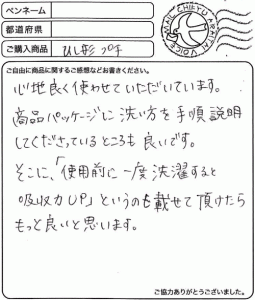 ペンネーム
都道府県
ご購入商品 ひし形 プチ
ご自由に商品に関するご感想などお書きください。
心地良く使わせていただいています。
商品パッケージに洗い方を手順説明
してくださっているところも良いです。
そこに、「使用前に一度洗濯すると
吸収力UP」というのも載せて頂けたら
もっと良いと思います。
ご協力ありがとうございました。